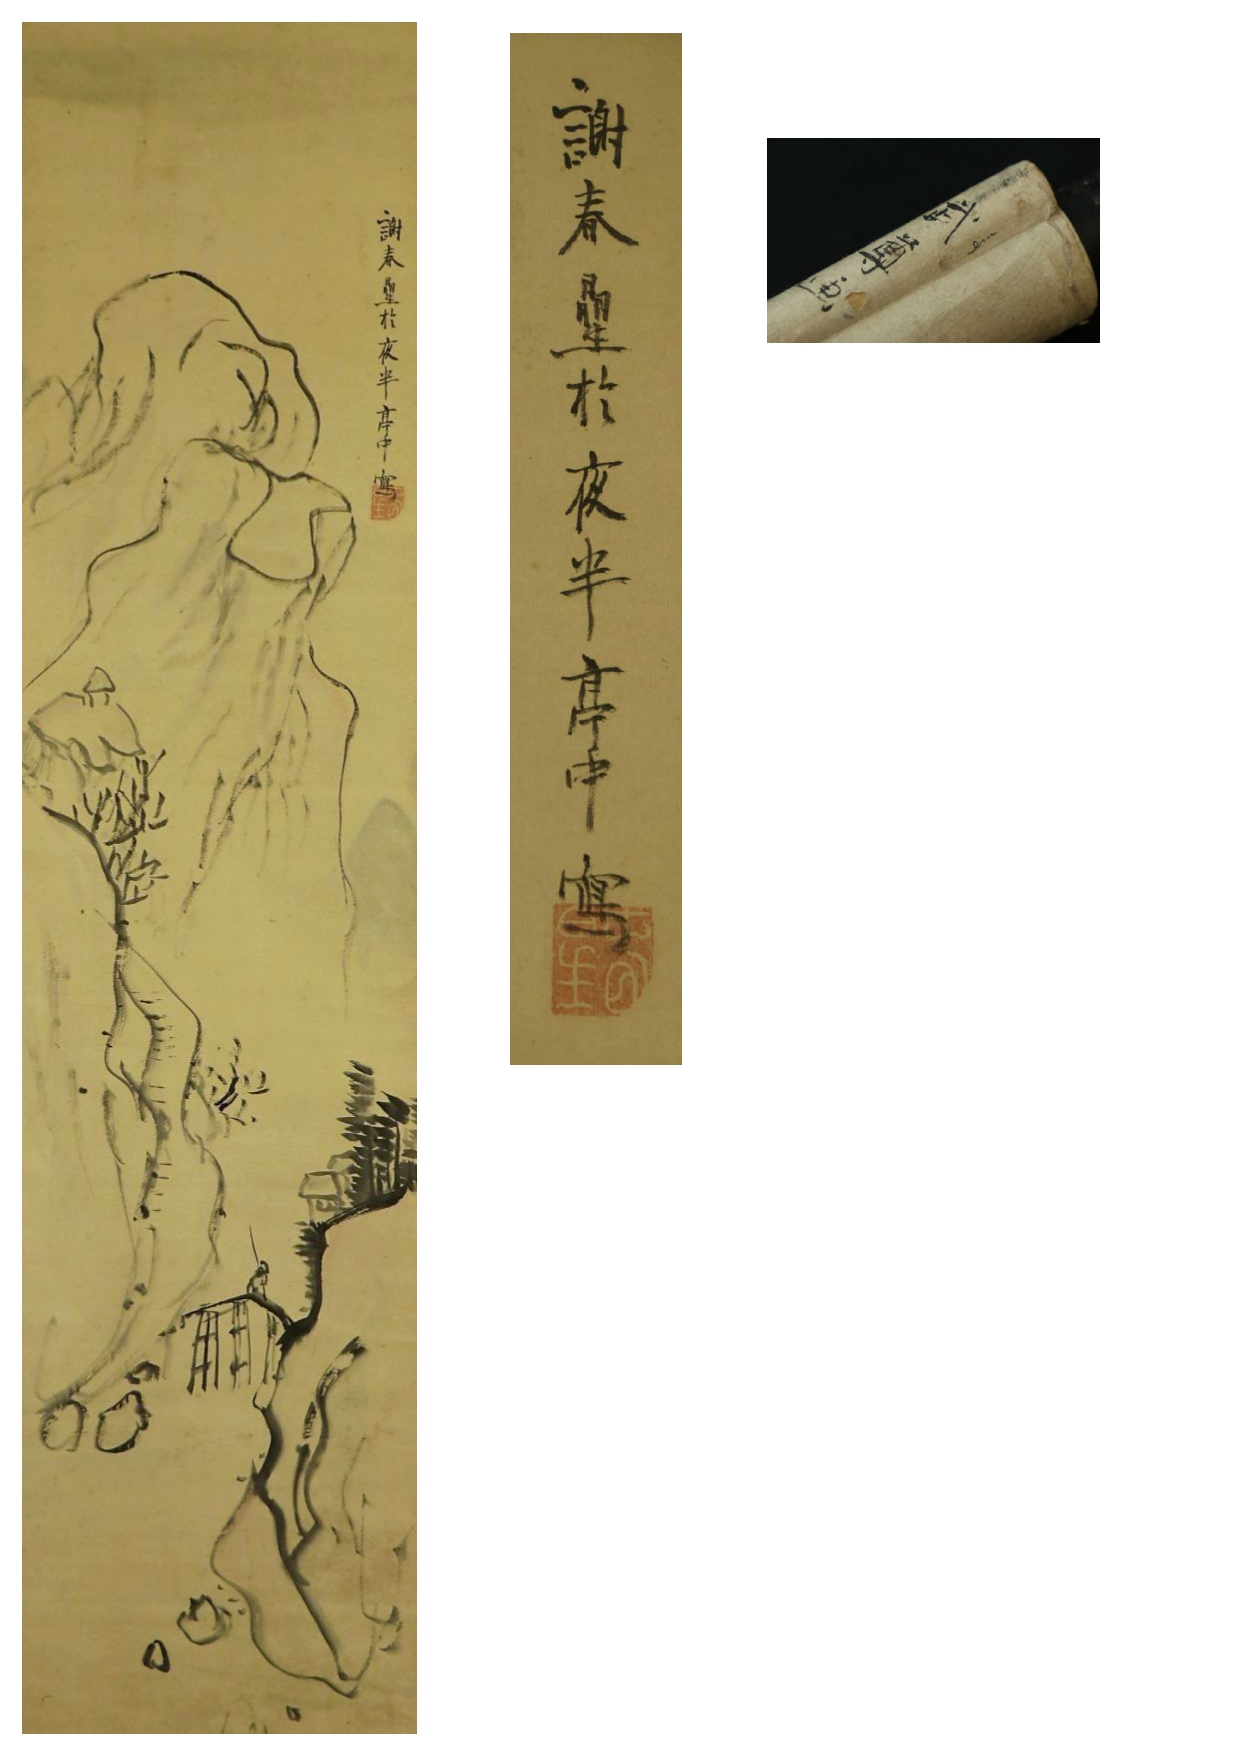 謝春曐於夜半亭中寫
謝春曐於夜半亭中寫